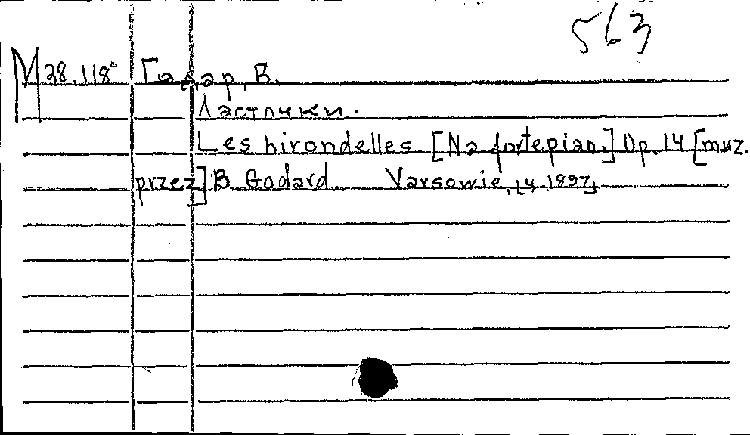 563
M 28.118° Годар, В.
Ласточки.
Les hirondelles [Na fortepian.] Op. 14 [muz.
przez] B. Godard Varsovie, 1897,